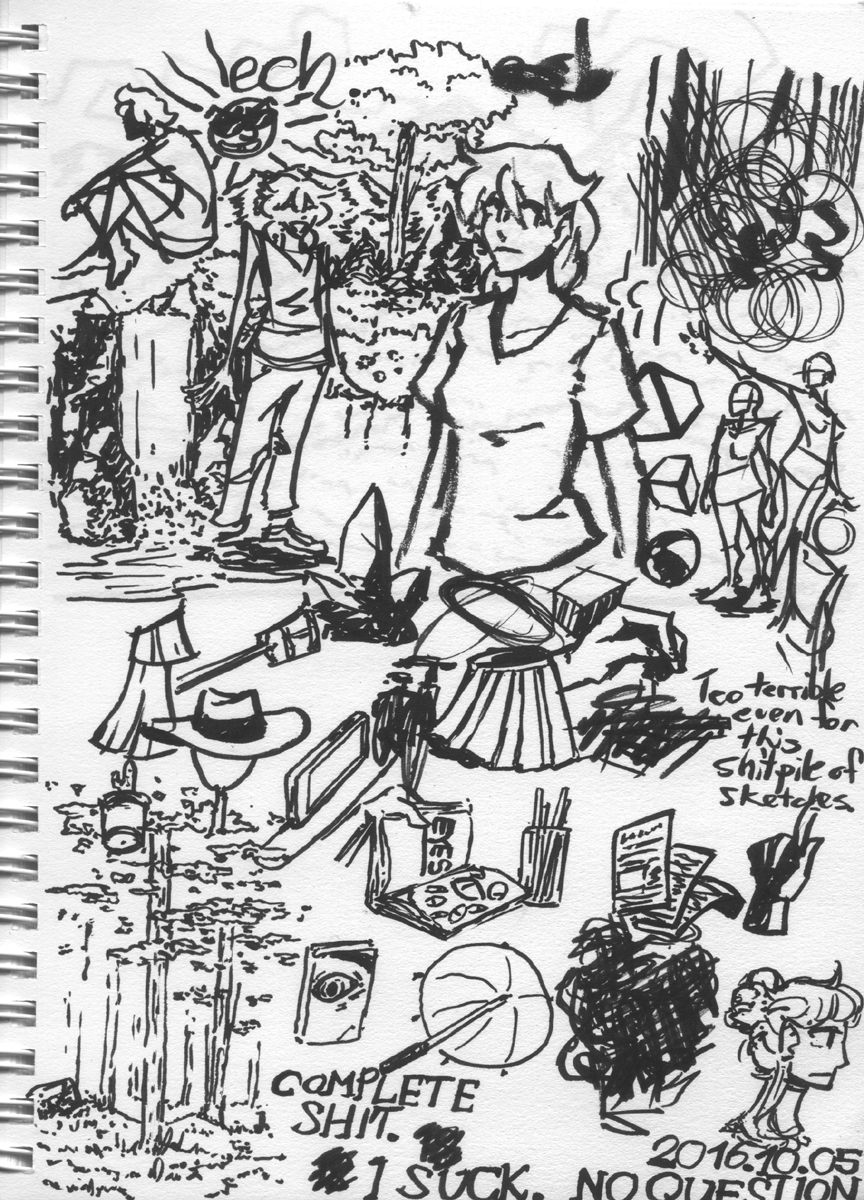 ech
Too terrible
even for
this
shitpile of
sketches.
EYES
COMPLETE
SHIT.
I SUCK. NO QUESTION
2016.10.05